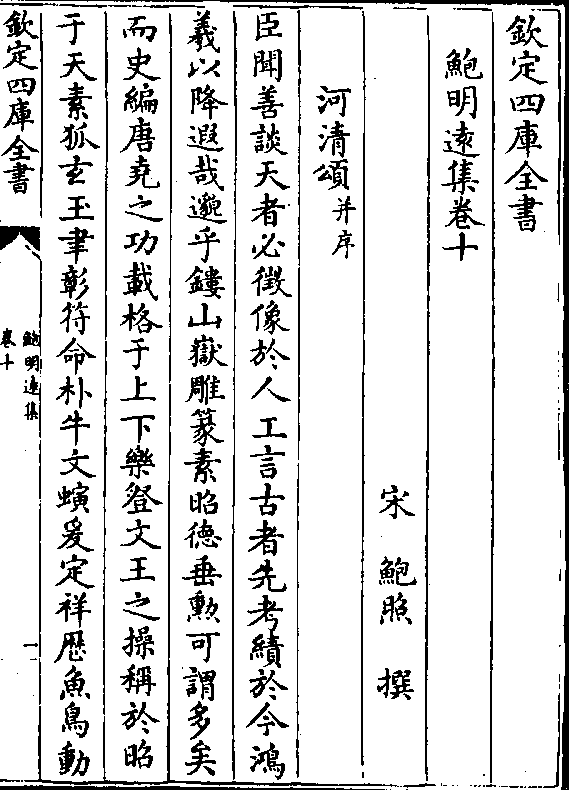 欽定四庫全書
鮑明遠集卷十
宋 鮑照 撰
河清頌并序
臣聞善談天者必徴像於人工言古者先考績於今鴻
羲以降遐哉邈乎鏤山嶽雕篆素昭德垂勲可謂多矣
而史編唐堯之功載格于上下樂登文王之操稱於昭
于天素狐玄玉聿彰符命朴牛文螾爰定祥厯魚鳥動
欽定四庫全書
鮑明遠集
卷十
一